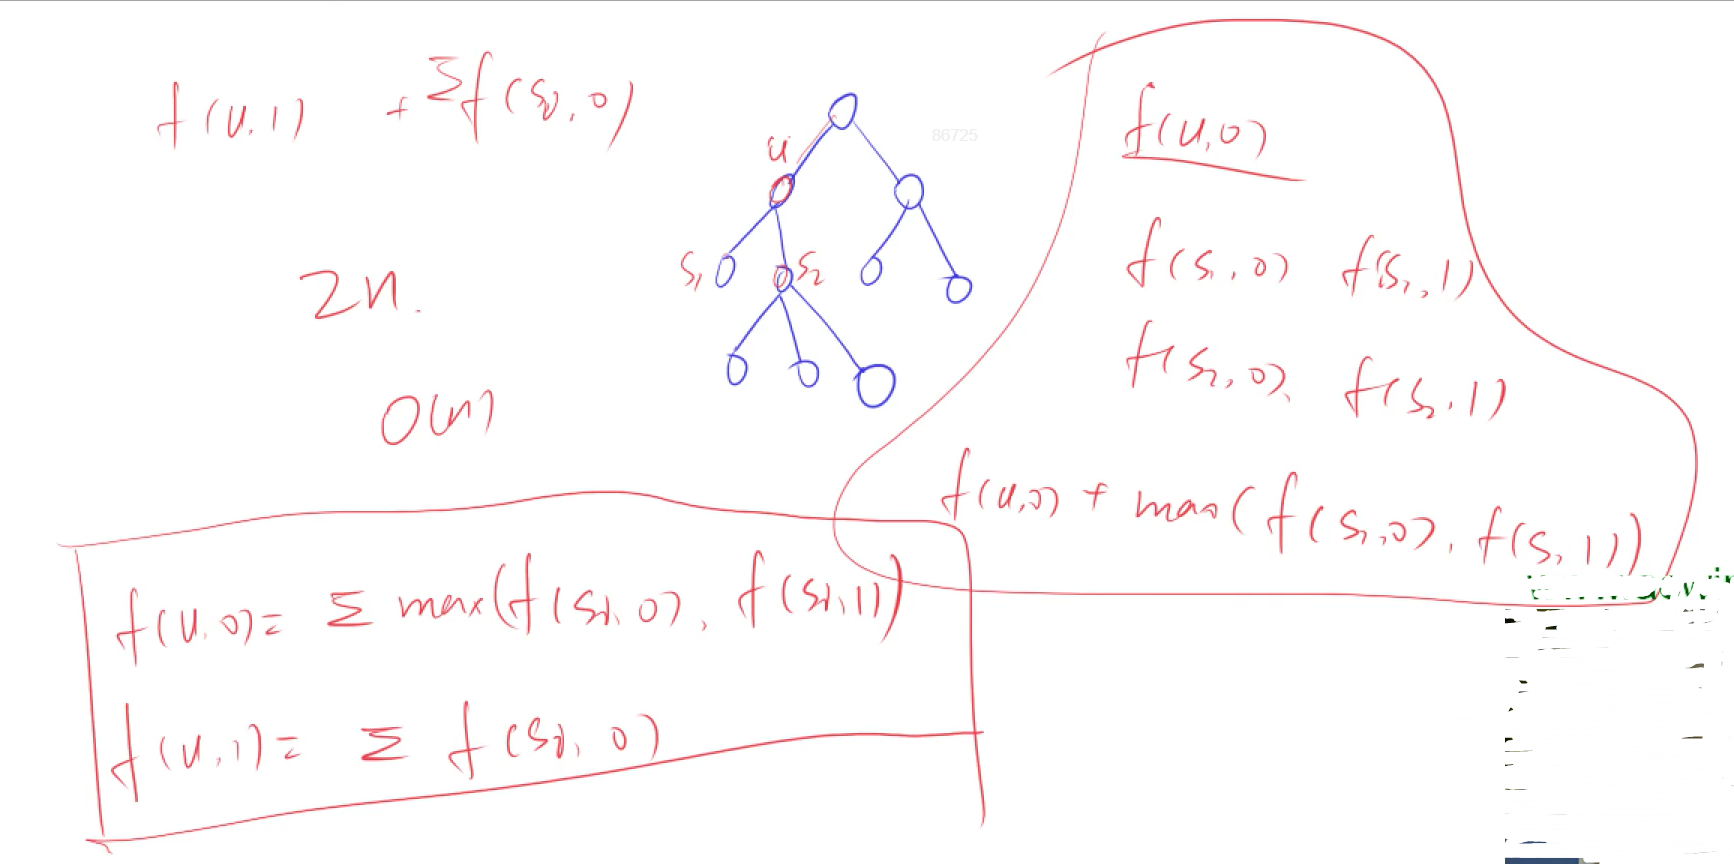 f(u,1) + Σf(si,0)
2n.
O(n)
86725
u
s1
s2
f(u,0)
f(s1,0) f(s1,1)
f(s2,0), f(s2,1)
f(u,0) + max(f(s1,0), f(s1,1))
f(u,0)= Σ max(f(si,0), f(si,1))
f(u,1)= Σ f(si,0)